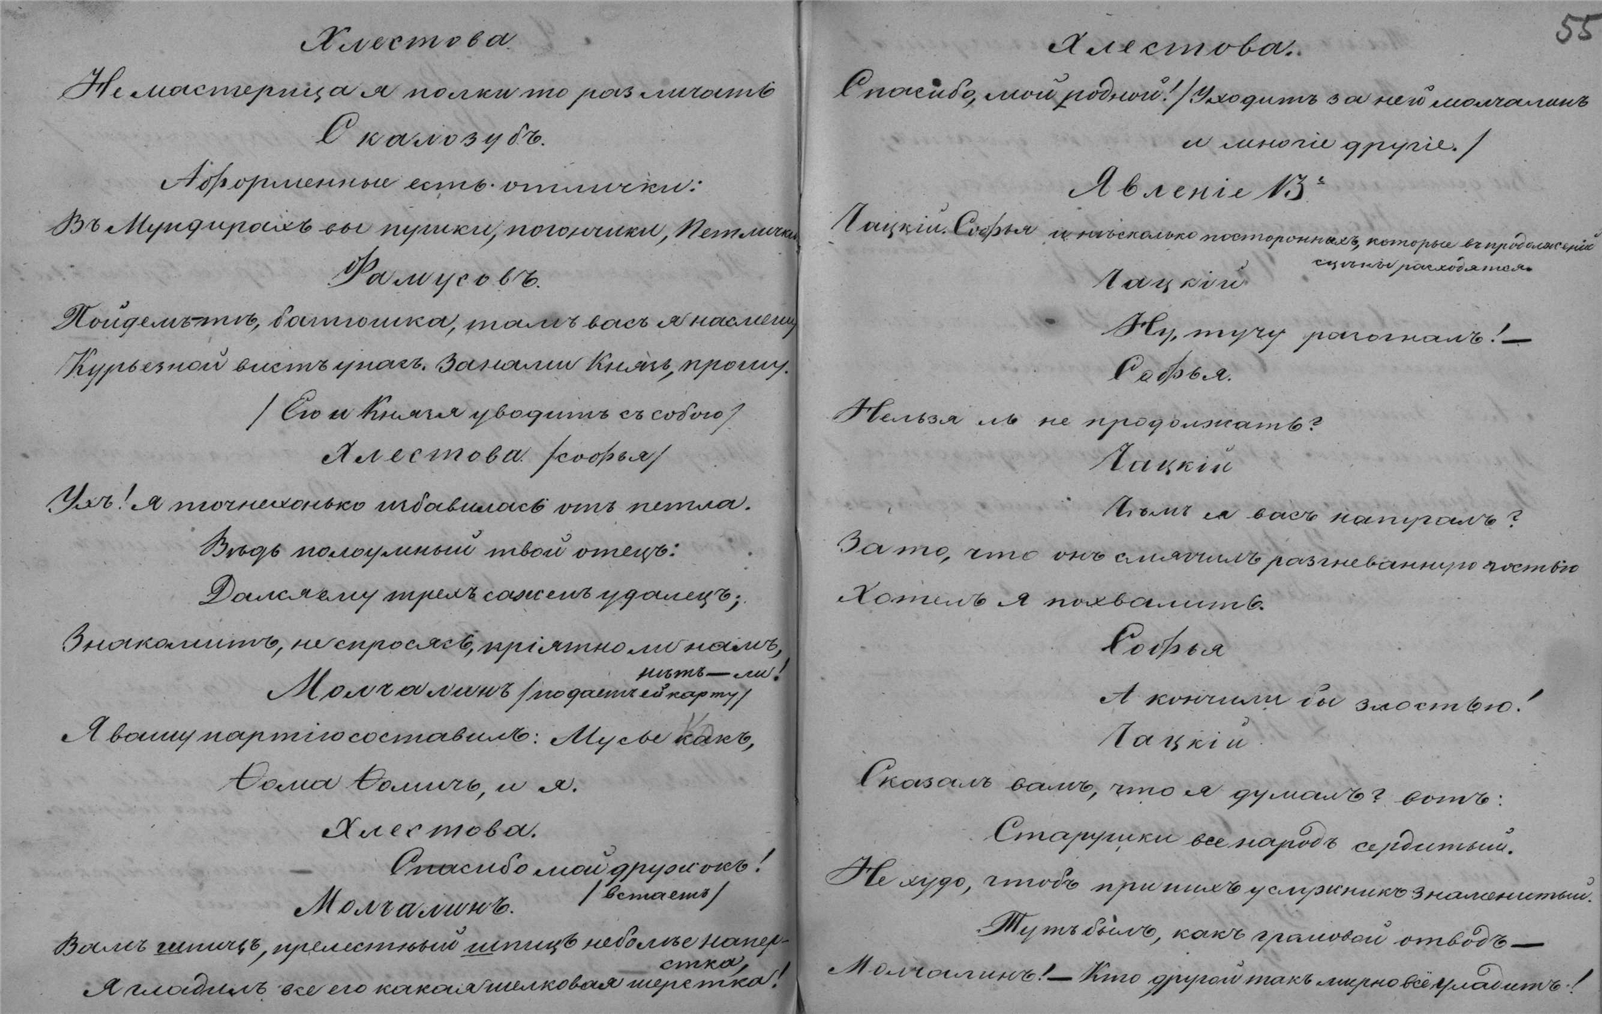 Хлестова
Не мастерица я полки то различать
Скалозубъ.
А форменные есть отлички:
Въ Мундирахъ вы пушки, погончики, Петлички
Фамусовъ.
Пойдемъ-тъ, батюшка, тамъ васъ я насмешу
Курьезной вистъ у насъ. За нами Князь, прошу.
/ Его и Князя уводитъ съ собою /
Хлестова /софья/
Ухъ! я точнехонько избавилась отъ петла.
Вѣдь полоумный твой отецъ:
Дался ему трехъ сажень удалецъ;
Знакомитъ, не спросясь, пріятно ли намъ,
нѣтъ — ли!
Молчалинъ /подаетъ ей карту/
Я вашу партію составилъ: Мусье Какъ,
Ѳома Ѳомичъ, и я.
Хлестова.
Спасибо мой дружокъ!
/встаетъ/
Молчалинъ.
Вамъ шпицъ, прелестный шпицъ не болѣе напер-
стка,
Я гладилъ все его какая шелковая шерстка!
55
Хлестова.
Спасибо, мой родной! / Уходитъ за ней молчалинъ
и многіе другіе. /
Явленіе 13
Чацкій. Софья и нѣсколько постороннихъ, которые въ продолженіи
сцены расходятся.
Чацкій
Ну, тучу разогналъ! —
Софья.
Нельзя ль не продолжать?
Чацкій
Чѣмъ я васъ напугалъ?
За то, что онъ смягчилъ разгневанную гостью
Хотелъ я похвалить.
Софья
А кончили бы злостью!
Чацкій
Сказать вамъ, что я думалъ? вотъ:
Старушки все народъ сердитый.
Не худо, чтобъ при нихъ услужникъ знаменитый.
Тутъ былъ, какъ грамовой отводъ —
Молчалинъ! — Кто другой такъ мирно всё уладитъ!